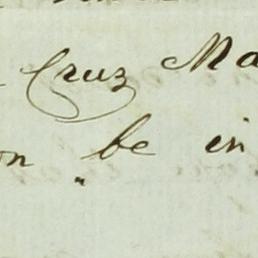 Cruz Ma
on be in